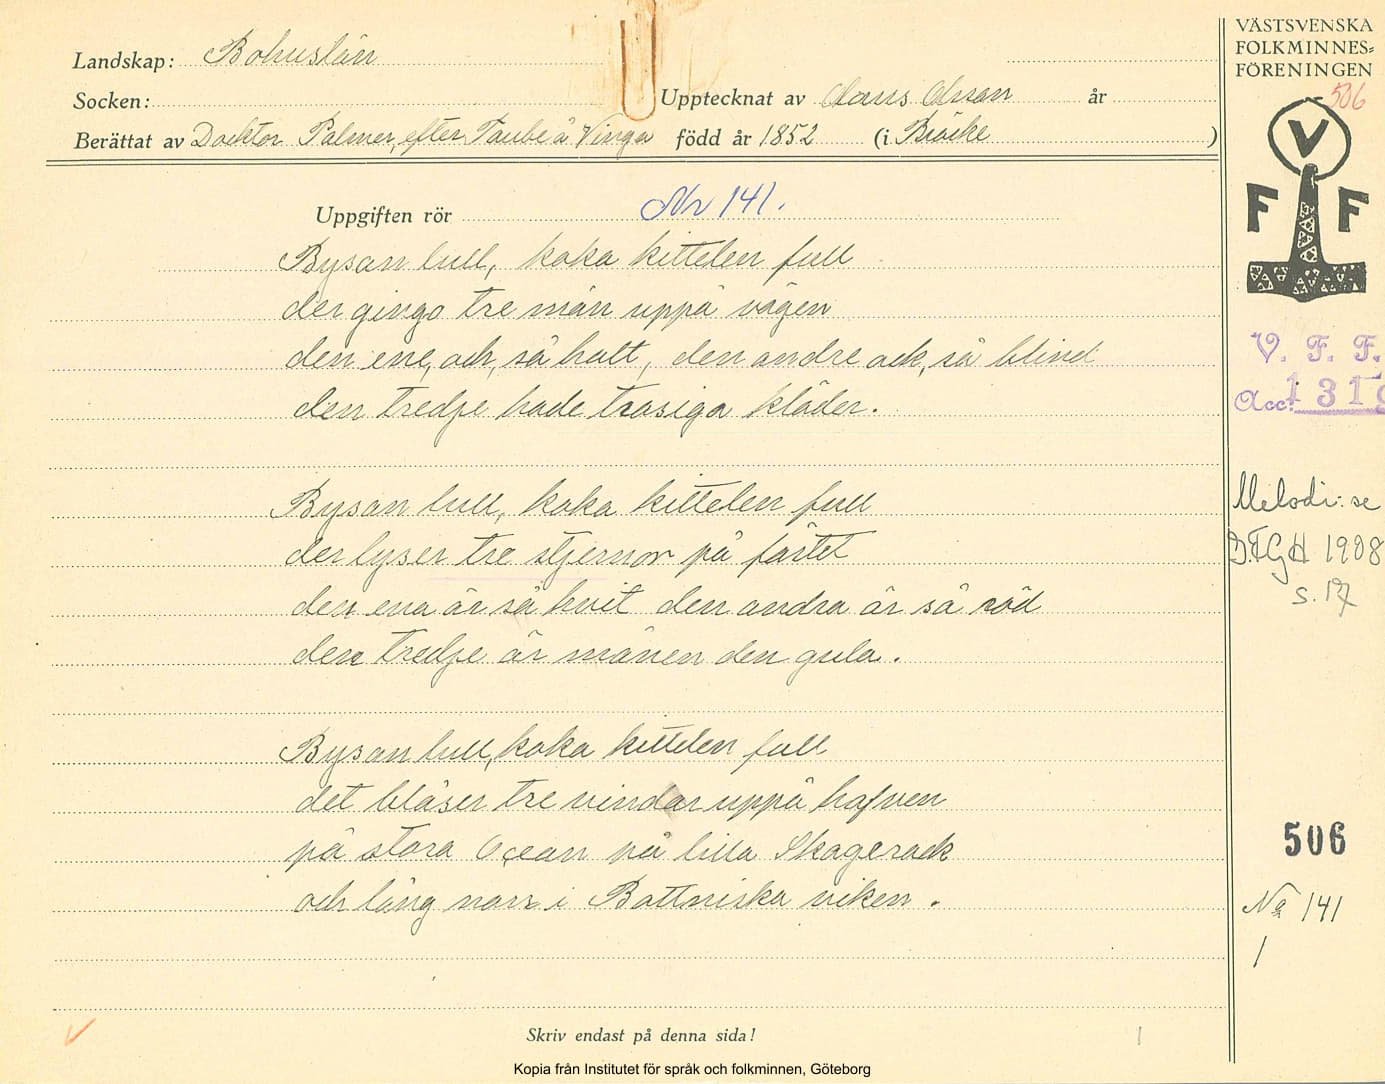 Landskap: Bohuslän
Socken:
Upptecknat av Claus Olsson år
Berättat av Docktor Palmer, efter Taube å Vinga född år 1852 (i Bräcke)
Uppgiften rör Nr 141.
Bysan lull, koka kittelen full
der gingo tre män uppå vägen
den ene, ack, så halt, den andre ack, så blind
den tredje hade trasiga kläder.
Bysan lull, koka kittelen full
der lyser tre stjernor på fästet
den ena är så hvit den andra är så röd
den tredje är månen den gula.
Bysan lull, koka kittelen full
det blåser tre vindar uppå hafven
på stora Ocean på lilla Skagerack
och lång norr i Bottniska viken.
Skriv endast på denna sida!
VÄSTSVENSKA
FOLKMINNES=
FÖRENINGEN
506
V
F F
V. F. F.
Acc. 1319
Melodi: se
1908
s. 17
506
Nr 141
1
Kopia från Institutet för språk och folkminnen, Göteborg